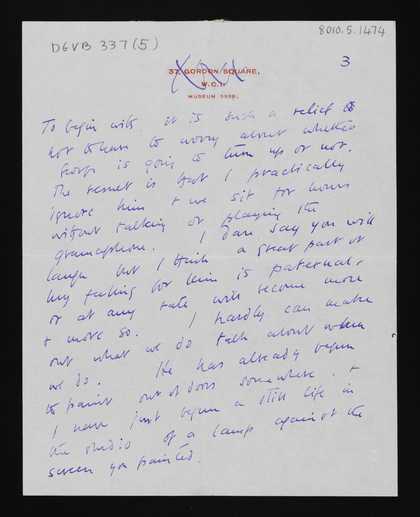 DGVB 337 (5)
8010.5.1474
3
37, GORDON SQUARE,
W.C.1.
MUSEUM
To begin with it is such a relief
not to have to worry about whether
George is going to turn up or not.
The result is that I practically
ignore him & we sit for hours
without talking or playing the
gramophone. I dare say you will
laugh but I think a great part of
my feeling for him is paternal,
or at any rate will become more
& more so. I hardly can make
out what we do talk about when
we do. He has already begun
to paint out of doors somewhere. &
I have just begun a still life in
the studio of a lamp against the
screen you painted.